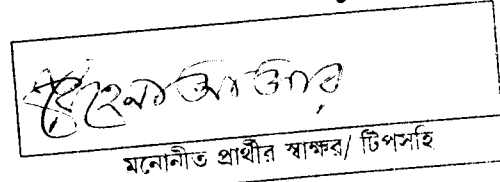 আক্তার
মনোনীত প্রার্থীর স্বাক্ষর/ টিপসহি